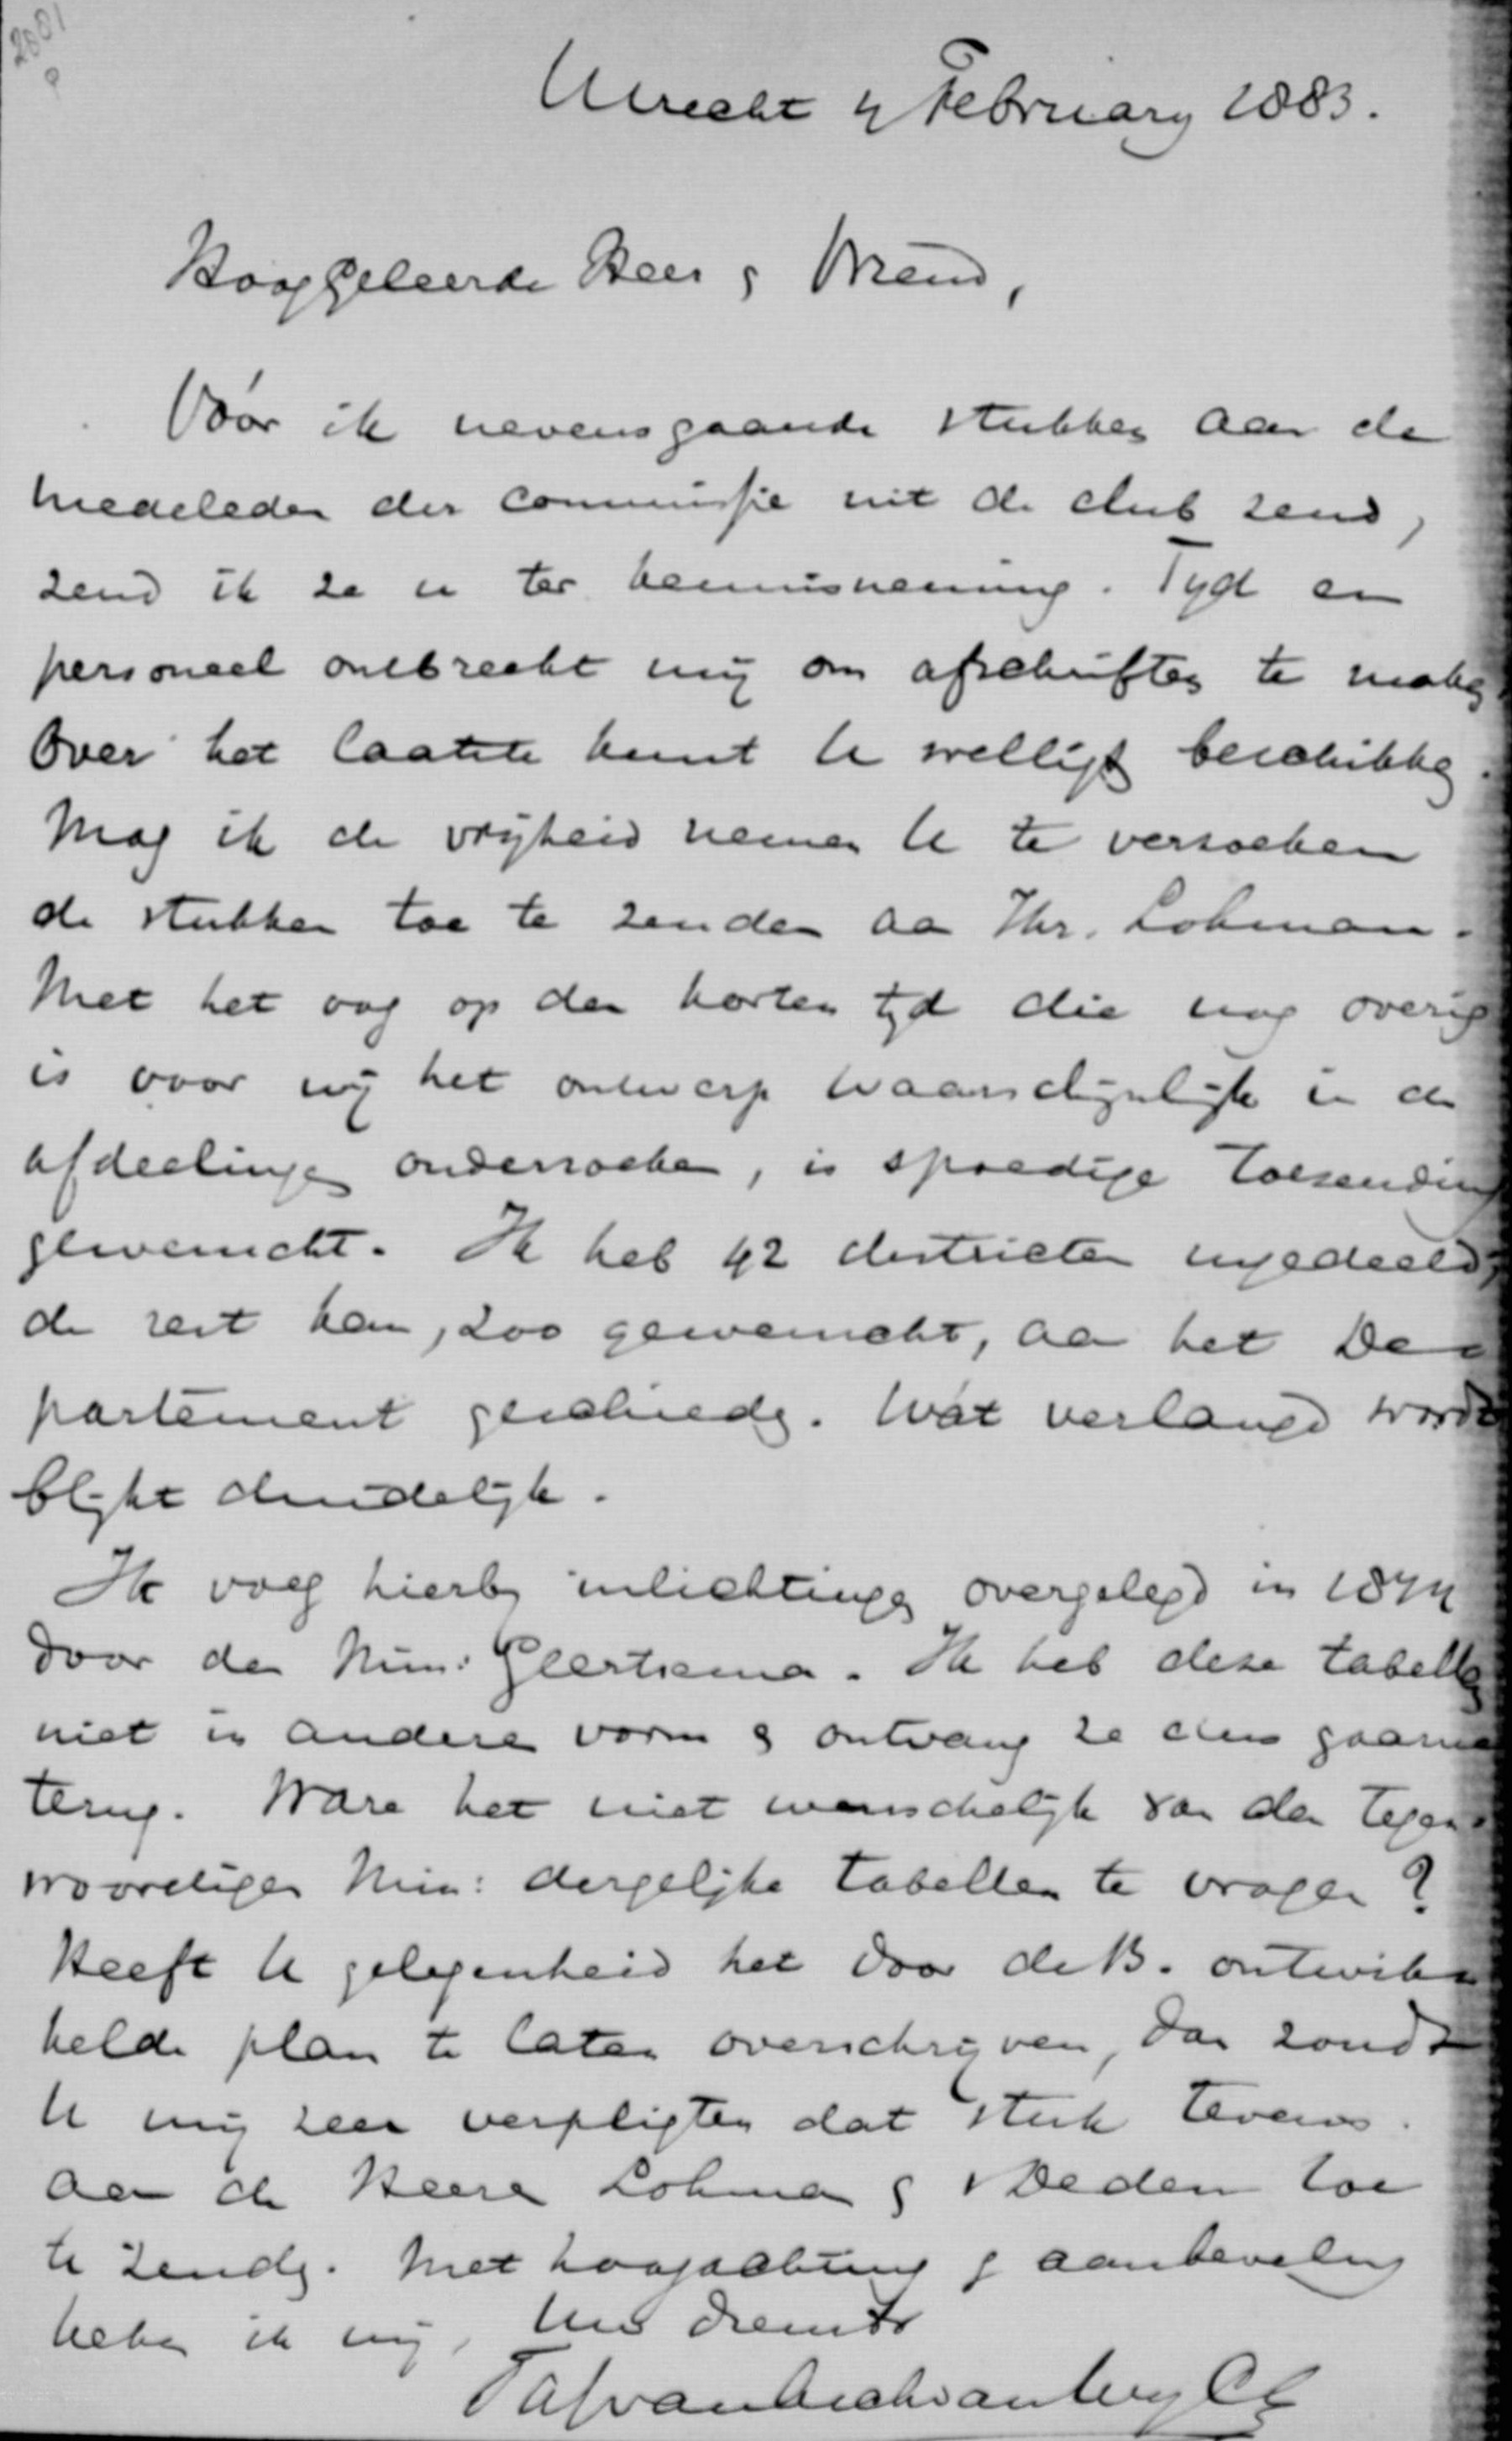 2801
Utrecht 4 February 1883.
Hooggeleerde Heer & Vriend,
Vóór ik nevensgaande stukken aan de
medeleden der commissie uit de club zend,
zend ik ze u ter kennisneming. Tyd en
personeel ontbreekt mij om afschriften te maken.
Over het laatste kunt U welligt beschikken.
Mag ik de vrijheid nemen U te verzoeken
de stukken toe te zenden aan Jhr. Lohman.
Met het oog op den korten tijd die nog overig
is voor wij het ontwerp waarschijnlijk in de
afdeelingen onderzoeken, is spoedige toezending
gewenscht. Ik heb 42 districten ingedeeld;
de rest kan, zoo gewenscht, aan het De-
partement geschieden. Wat verlangd wordt
blijkt duidelijk.
Ik voeg hierbij inlichtingen overgelegd in 1874
door den Min: Geertsema. Ik heb deze tabellen
niet in andere vorm & ontvang ze dus gaarne
terug. Ware het niet wenschelijk van den tegen-
woordigen Min: dergelijke tabellen te vragen?
Heeft U gelegenheid het door de B. ontwik-
kelde plan te laten overschrijven, dan zoudt
U mij zeer verpligten dat stuk tevens
aan de Heeren Lohman & v Dedem toe
te zenden. Met hoogachting & aanbeveling
noem ik mij, Uws dienstv